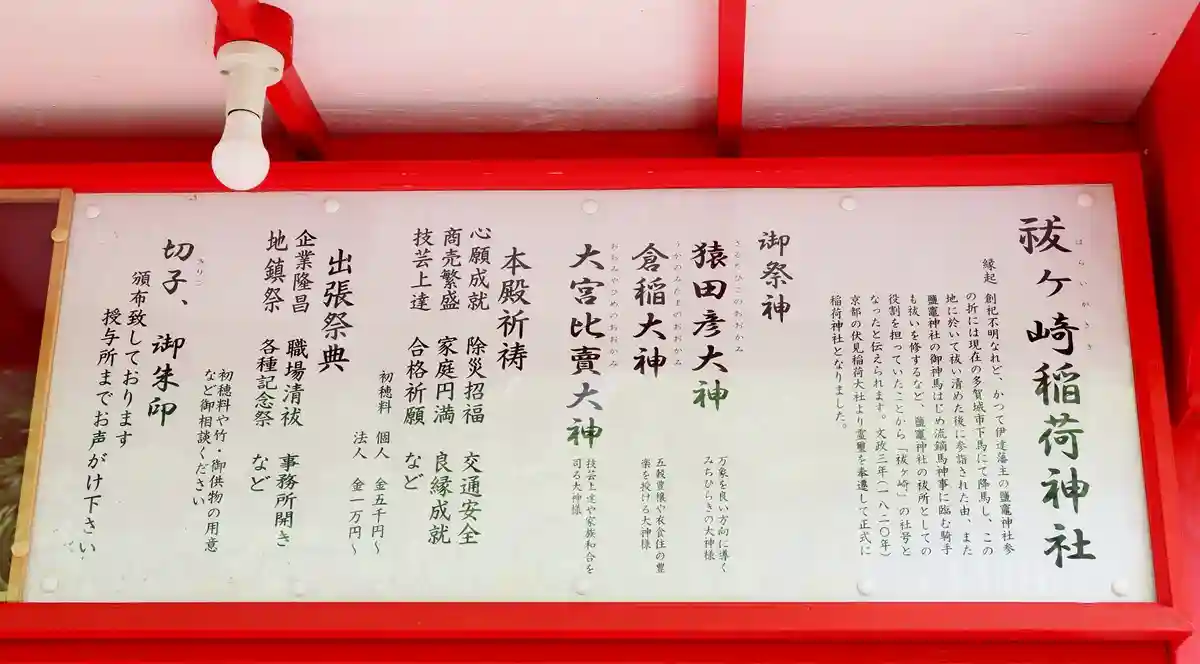 祓ヶ崎稲荷神社
はらいがさき
縁起 創祀不明なれど、かつて伊達藩主の鹽竈神社参
の折には現在の多賀城市下馬にて降馬し、この
地に於いて祓い清めた後に参詣された由、また
鹽竈神社の御神馬はじめ流鏑馬神事に臨む騎手
も祓いを修するなど、鹽竈神社の祓所としての
役割を担っていたことから「祓ヶ崎」の社号と
なったと伝えられます。文政三年(一八二〇年)
京都の伏見稲荷大社より霊璽を奉遷して正式に
稲荷神社となりました。
御祭神
猿田彦大神
さるたひこのおおかみ
万象を良い方向に導く
みちひらきの大神様
倉稲大神
うかのみたまのおおかみ
五穀豊穣や衣食住の豊
楽を授ける大神様
大宮比賣大神
おおみやひめのおおかみ
技芸上達や家族和合を
司る大神様
本殿祈祷
心願成就 除災招福 交通安全
商売繁盛 家庭円満 良縁成就
技芸上達 合格祈願 など
初穂料 個人 金五千円~
法人 金一万円~
出張祭典
企業隆昌 職場清祓 事務所開き
地鎮祭 各種記念祭 など
初穂料や竹・御供物の用意
など御相談ください
切子、御朱印
きりこ
頒布致しております
授与所までお声がけ下さい